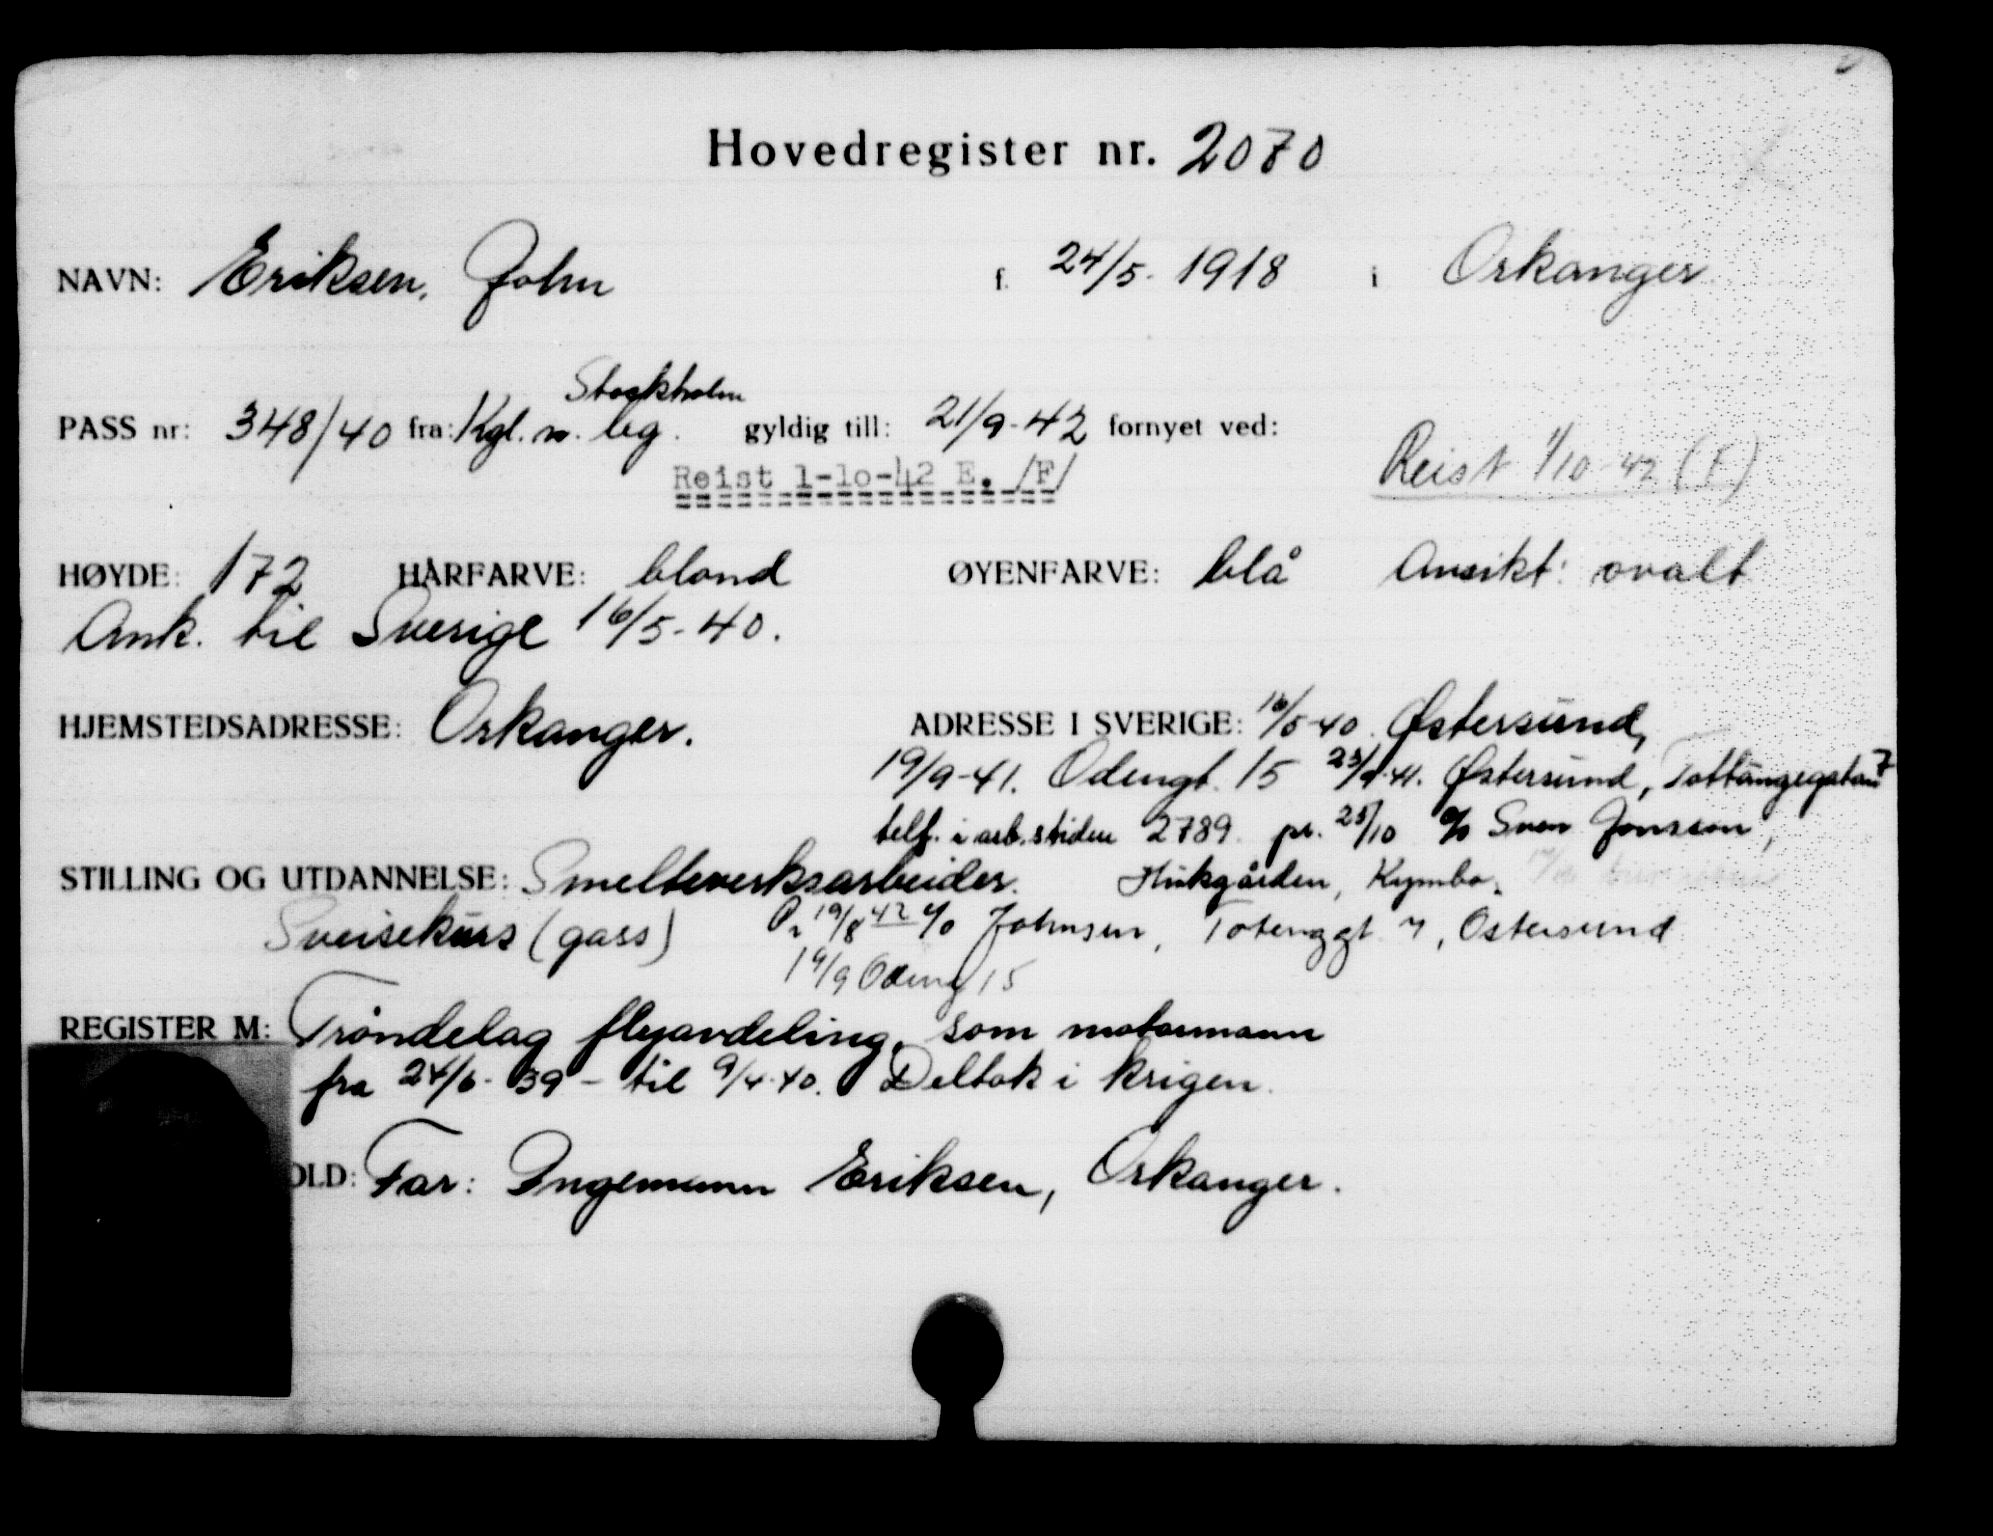 Hovedregister nr. 2070
NAVN: Eriksen, John f. 24/5. 1918 i Orkanger
Stockholm
PASS nr: 348/40 fra: Kgl. n. leg. gyldig till: 21/9-42 fornyet ved:
Reist 1-10-42 E. /F/
Reist 1/10-42 (F)
HØYDE: 172 HÅRFARVE: blond ØYENFARVE: blå Ansikt: ovalt
Ank. til Sverige 16/5-40.
HJEMSTEDSADRESSE: Orkanger. ADRESSE I SVERIGE: 16/5-40. Østersund,
19/9-41. Odengt. 15 23/9-41. Østersund, 7
telf. i arb.stiden 2789. pr. 25/10 c/o Sven Jonsson,
STILLING OG UTDANNELSE: Smelteverksarbeider. Hukgården, Kymbo.
Sveisekurs (gass) 19/8 42 c/o Johnsen, 7, Østersund
19/9 Odeng 15
REGISTER M: Trøndelag flyavdeling, som motormann
fra 24/6-39 - til 9/4-40. Deltok i krigen.
OLD: Far: Ingemann Eriksen, Orkanger.